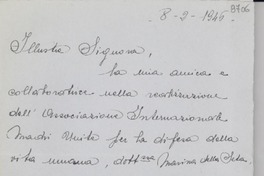 8706
8-2-1946.
Illustre Signora,
la mia amica e
collaboratrice nella costituzione
dell'Associazione Internazionale
Madri Unite per la difesa della
vita umana, dott.ssa Marina della Seta